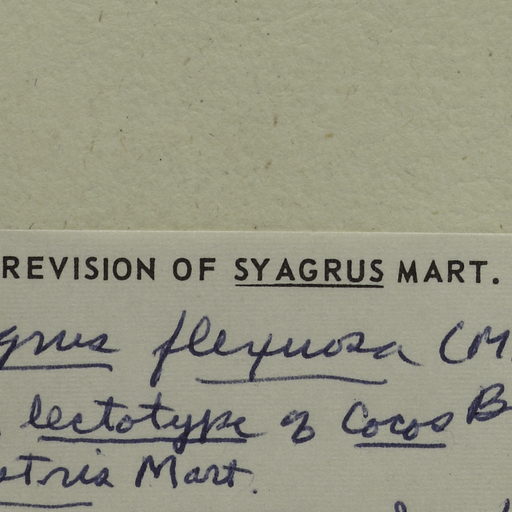 REVISION OF SYAGRUS MART.
grus flexuosa (M
lectotype of Cocos B
stris Mart.